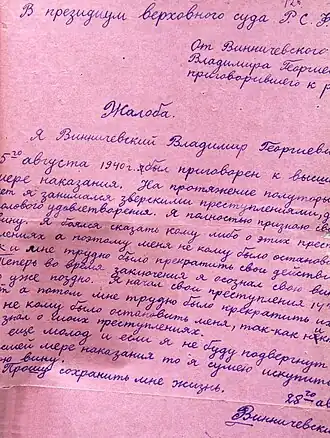 В президиум верховного суда Р.С.Ф
От Винничевского
Владимира Георгие
приговорившего к р
Жалоба.
Я Винничевский Владимир Георгиеви
5го августа 1940г. я был приговорен к высш
мере наказания. На протяжение полуторы
ет я занимался зверскими преступлениями, д
олового удовлетворения. Я полностью признаю св
вину. Я боялся сказать кому либо о этих прест
лениях а поэтому меня не кому было останов
к мне трудно было прекратить свои действ
Теперь во время заключения я осознал свою ви
о уже поздно. Я начал свои преступления 14
а потом мне трудно было прекратить и
не кому было остановить меня, так-как н
знал о моих преступлениях.
еще молод и если я не буду подвергнут
сшей мере наказания то я сумею искупить
ою вину.
Прошу сохранить мне жизнь.
28го ав
Винничевски